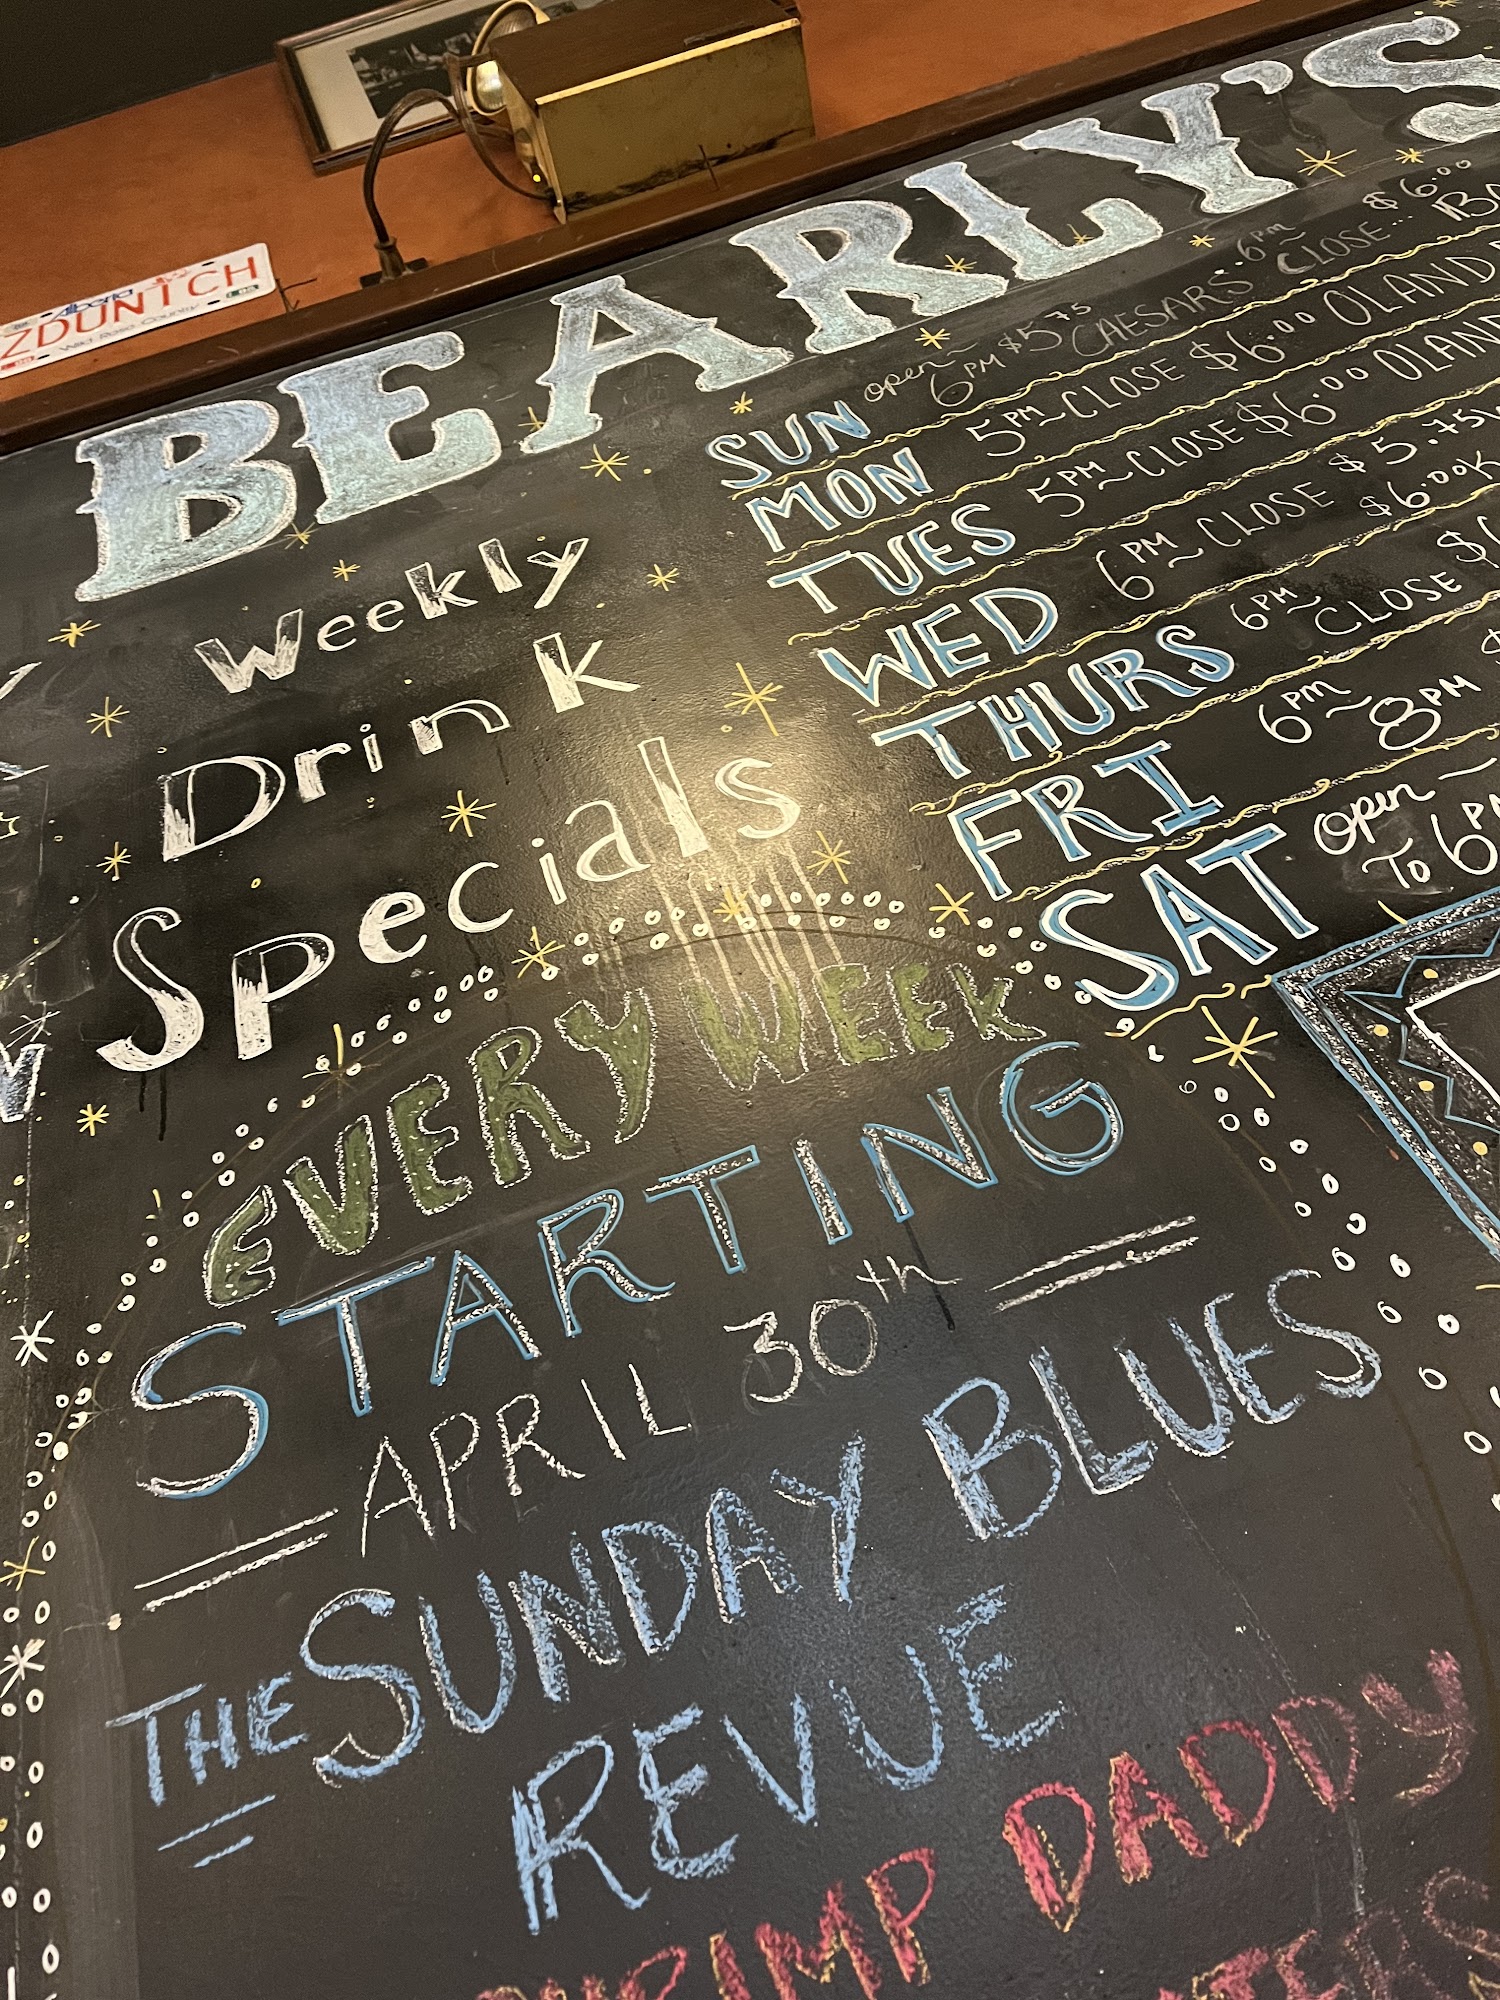 Alberta
ZDUNICH
Wild Rose Country
BEARLY'S
Weekly
Drink
Specials
SUN open~6PM $5.75 CAESARS 6pm~CLOSE... $6.00
MON 5PM~CLOSE $6.00 OLAND
TUES 5PM~CLOSE $6.00 OLAN
WED 6PM~CLOSE $5.75
THURS 6PM~CLOSE $6.00
FRI 6PM~8PM
SAT Open~TO 6PM
EVERY WEEK
STARTING
APRIL 30th
THE SUNDAY BLUES
REVUE
DADDY